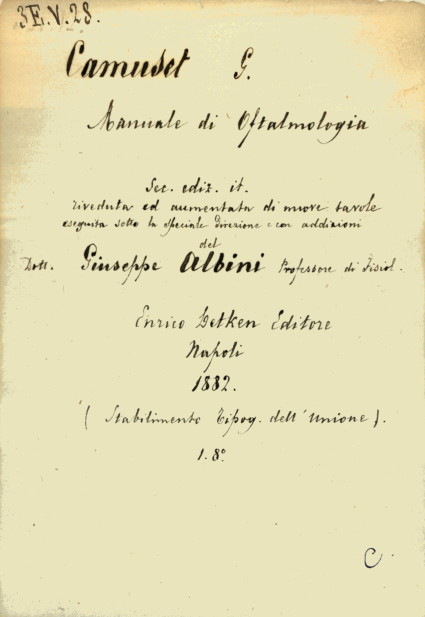 3E.V.28.
Camuset G.
Manuale di Oftalmologia
Sec. ediz. it.
riveduta ed aumentata di nuove tavole
eseguita sotto la speciale direzione e con addizioni
del
Dott. Giuseppe Albini Professore di Fisiol.
Enrico Detken Editore
Napoli
1882.
(Stabilimento Tipog. dell'Unione).
1. 8º
C